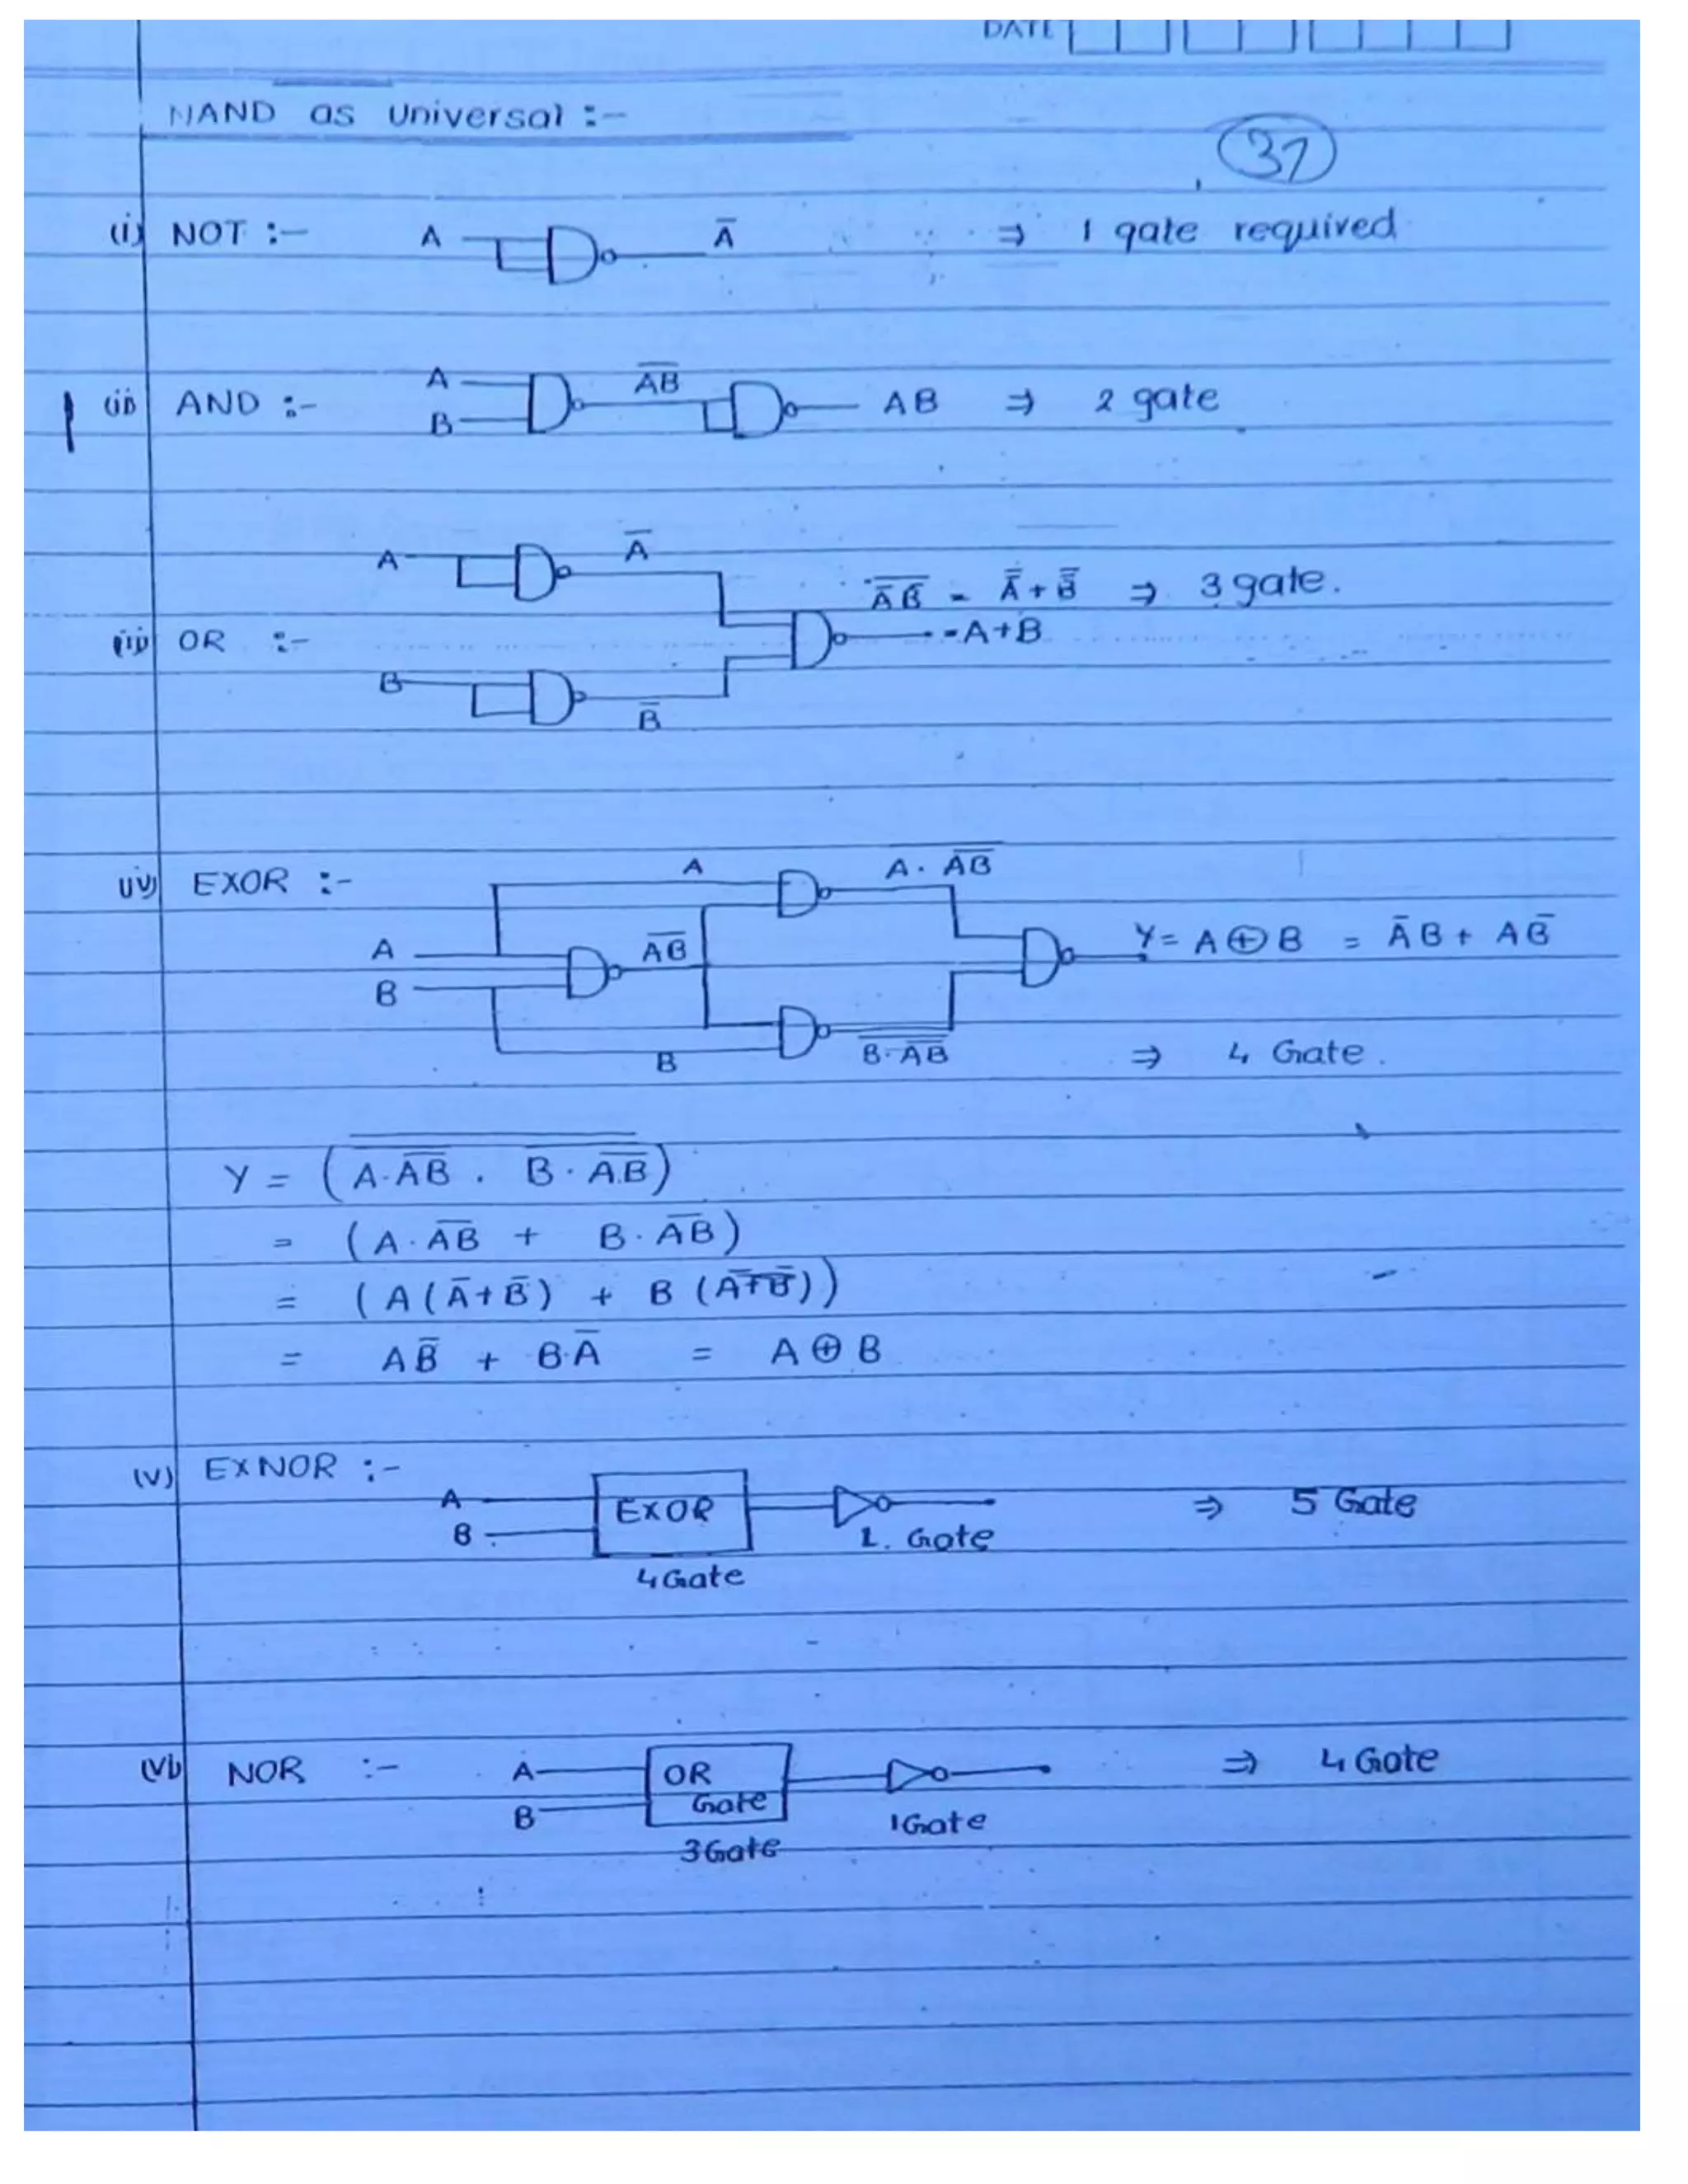 DATE
NAND as Universal :-
37
(i) NOT :- A Ā ⇒ 1 gate required
(ii) AND :- A B A̅B̅ AB ⇒ 2 gate
A Ā
A̅̅ B̅̅ = A̿ + B̿ ⇒ 3 gate.
(iii) OR :- = A+B
B B̅
(iv) EXOR :- A A · A̅B̅
A B A̅B̅ Y = A ⊕ B = ĀB + AB̅
B B̅·̅A̅̅B̅̅ ⇒ 4 Gate.
Y = (A̅·̅A̅̅B̅̅ . B̅·̅A̅̅.̅B̅̅)
= (A · A̅B̅ + B · A̅B̅)
= (A(Ā+B̅) + B(Ā+B̅))
= AB̅ + B·Ā = A ⊕ B
(v) EXNOR :- A B EXOR ⇒ 5 Gate
1. Gate
4 Gate
(vi) NOR :- A B OR Gate ⇒ 4 Gate
1 Gate
3 Gate